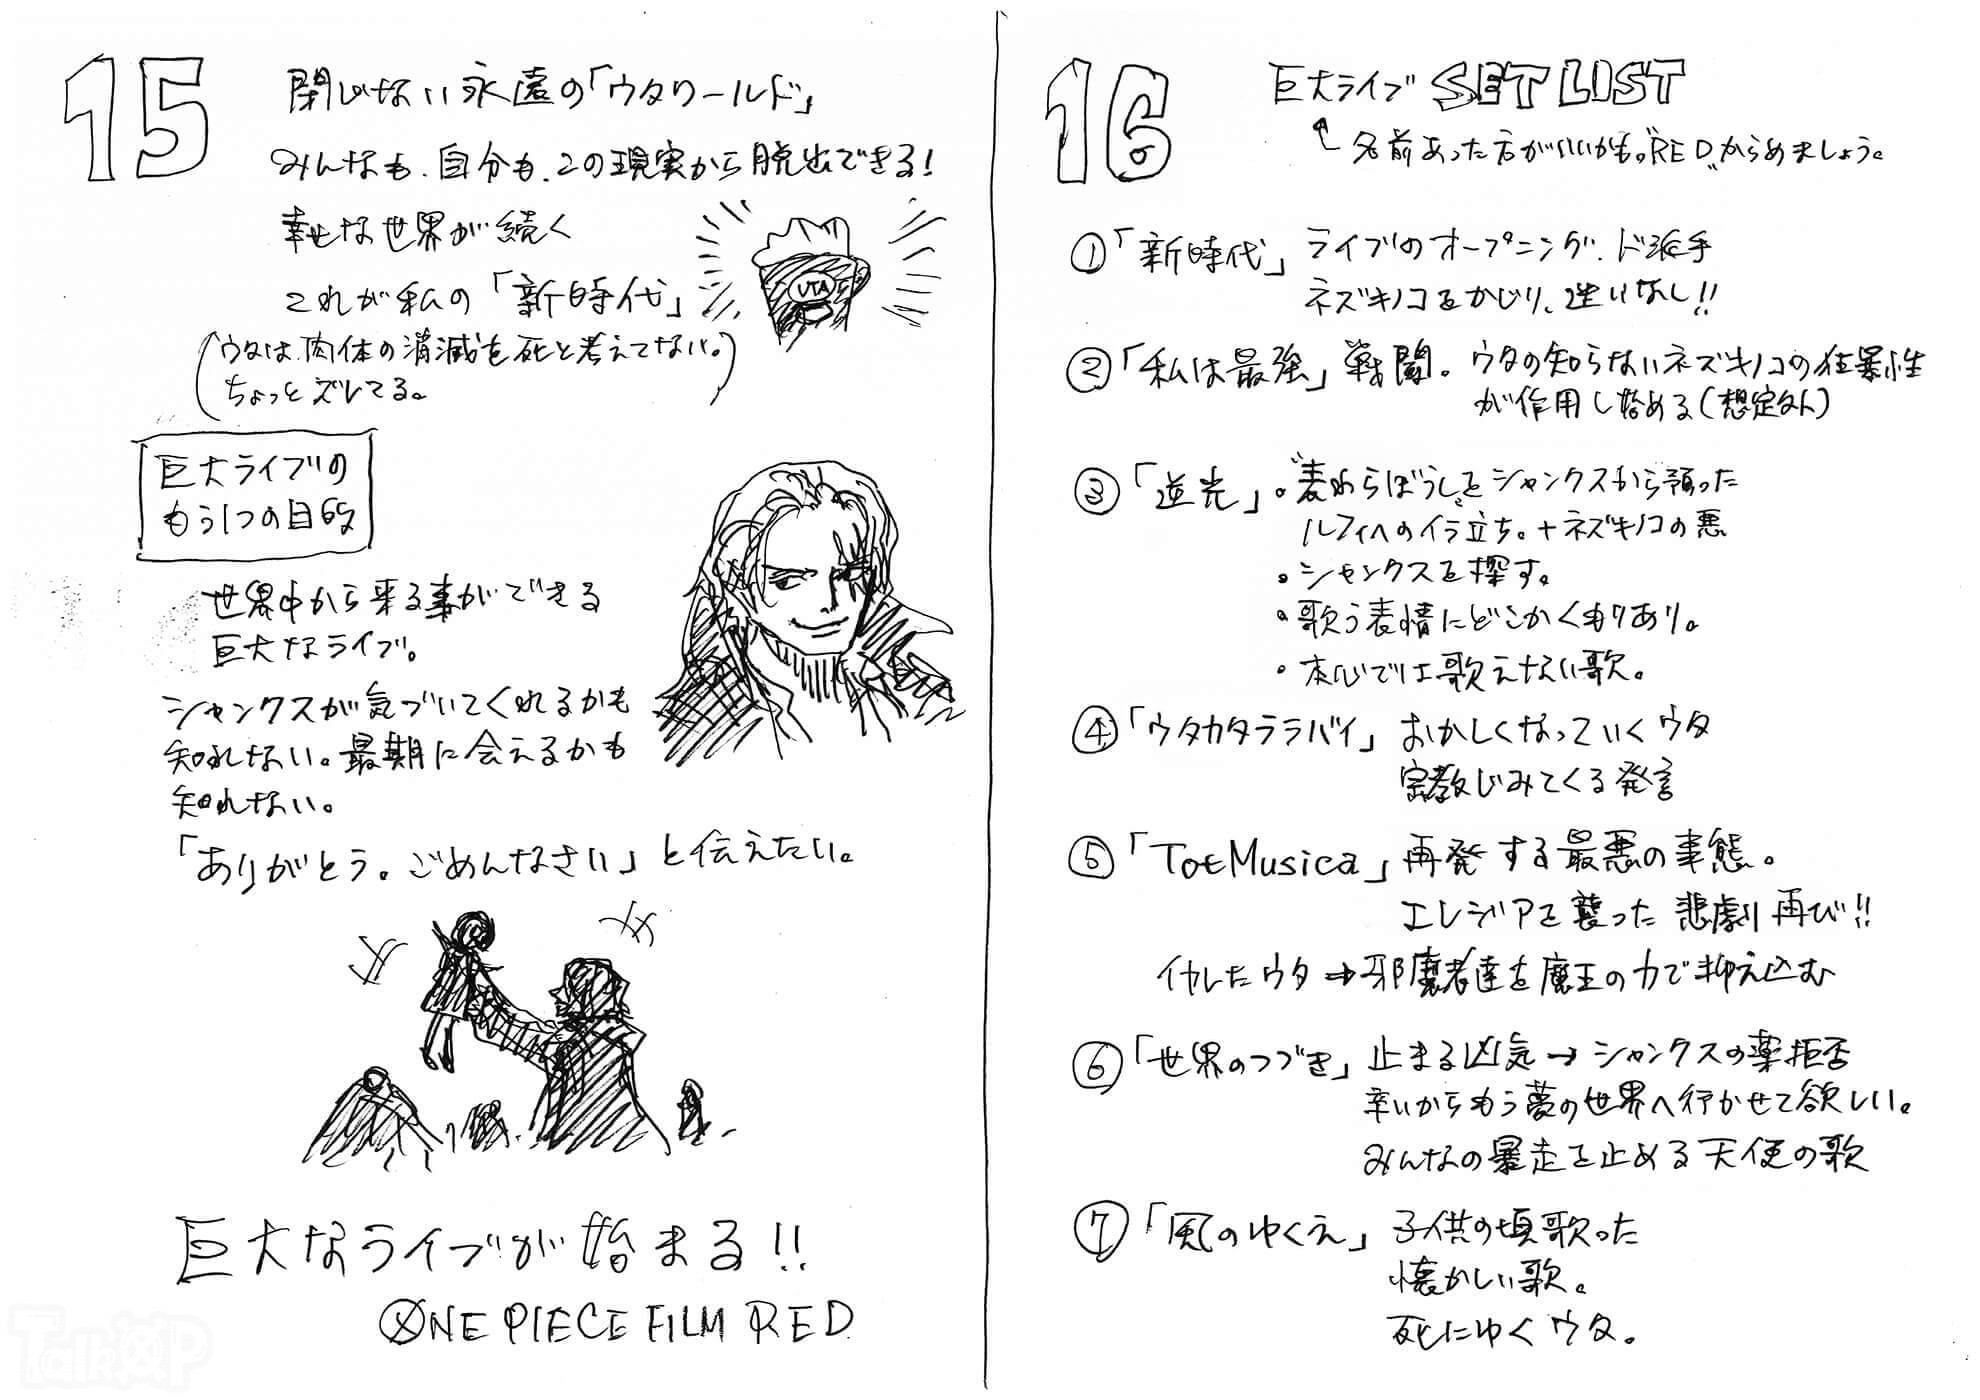 15
閉じない永遠の「ウタワールド」
みんなも、自分も、この現実から脱出できる!
幸せな世界が続く
これが私の「新時代」
UTA
(ウタは、肉体の消滅を死と考えてない。)
ちょっとズレてる。
巨大ライブの
もう1つの目的
世界中から来る事ができる
巨大なライブ。
シャンクスが気づいてくれるかも
知れない。最期に会えるかも
知れない。
「ありがとう。ごめんなさい」と伝えたい。
巨大なライブが始まる!!
ONE PIECE FILM RED
TalkOP
16
巨大ライブ SET LIST
名前あった方がいいかも。"RED"からめましょう。
①「新時代」ライブのオープニング、ド派手
ネズキノコをかじり、迷いなし!!
②「私は最強」戦闘。ウタの知らないネズキノコの狂暴性
が作用し始める(想定外)
③「逆光」。"麦わらぼうし"をシャンクスから預った
ルフィへのイラ立ち。+ネズキノコの悪
・シャンクスを探す。
・歌う表情にどこかくもりあり。
・本心では歌えない歌。
④「ウタカタララバイ」おかしくなっていくウタ
宗教じみてくる発言
⑤「Tot Musica」再発する最悪の事態。
エレジアを襲った悲劇再び!!
イカレたウタ→邪魔者達を魔王の力で抑え込む
⑥「世界のつづき」止まる凶気→シャンクスの薬拒否
辛いからもう夢の世界へ行かせて欲しい。
みんなの暴走を止める天使の歌
⑦「風のゆくえ」子供の頃歌った
懐かしい歌。
死にゆくウタ。